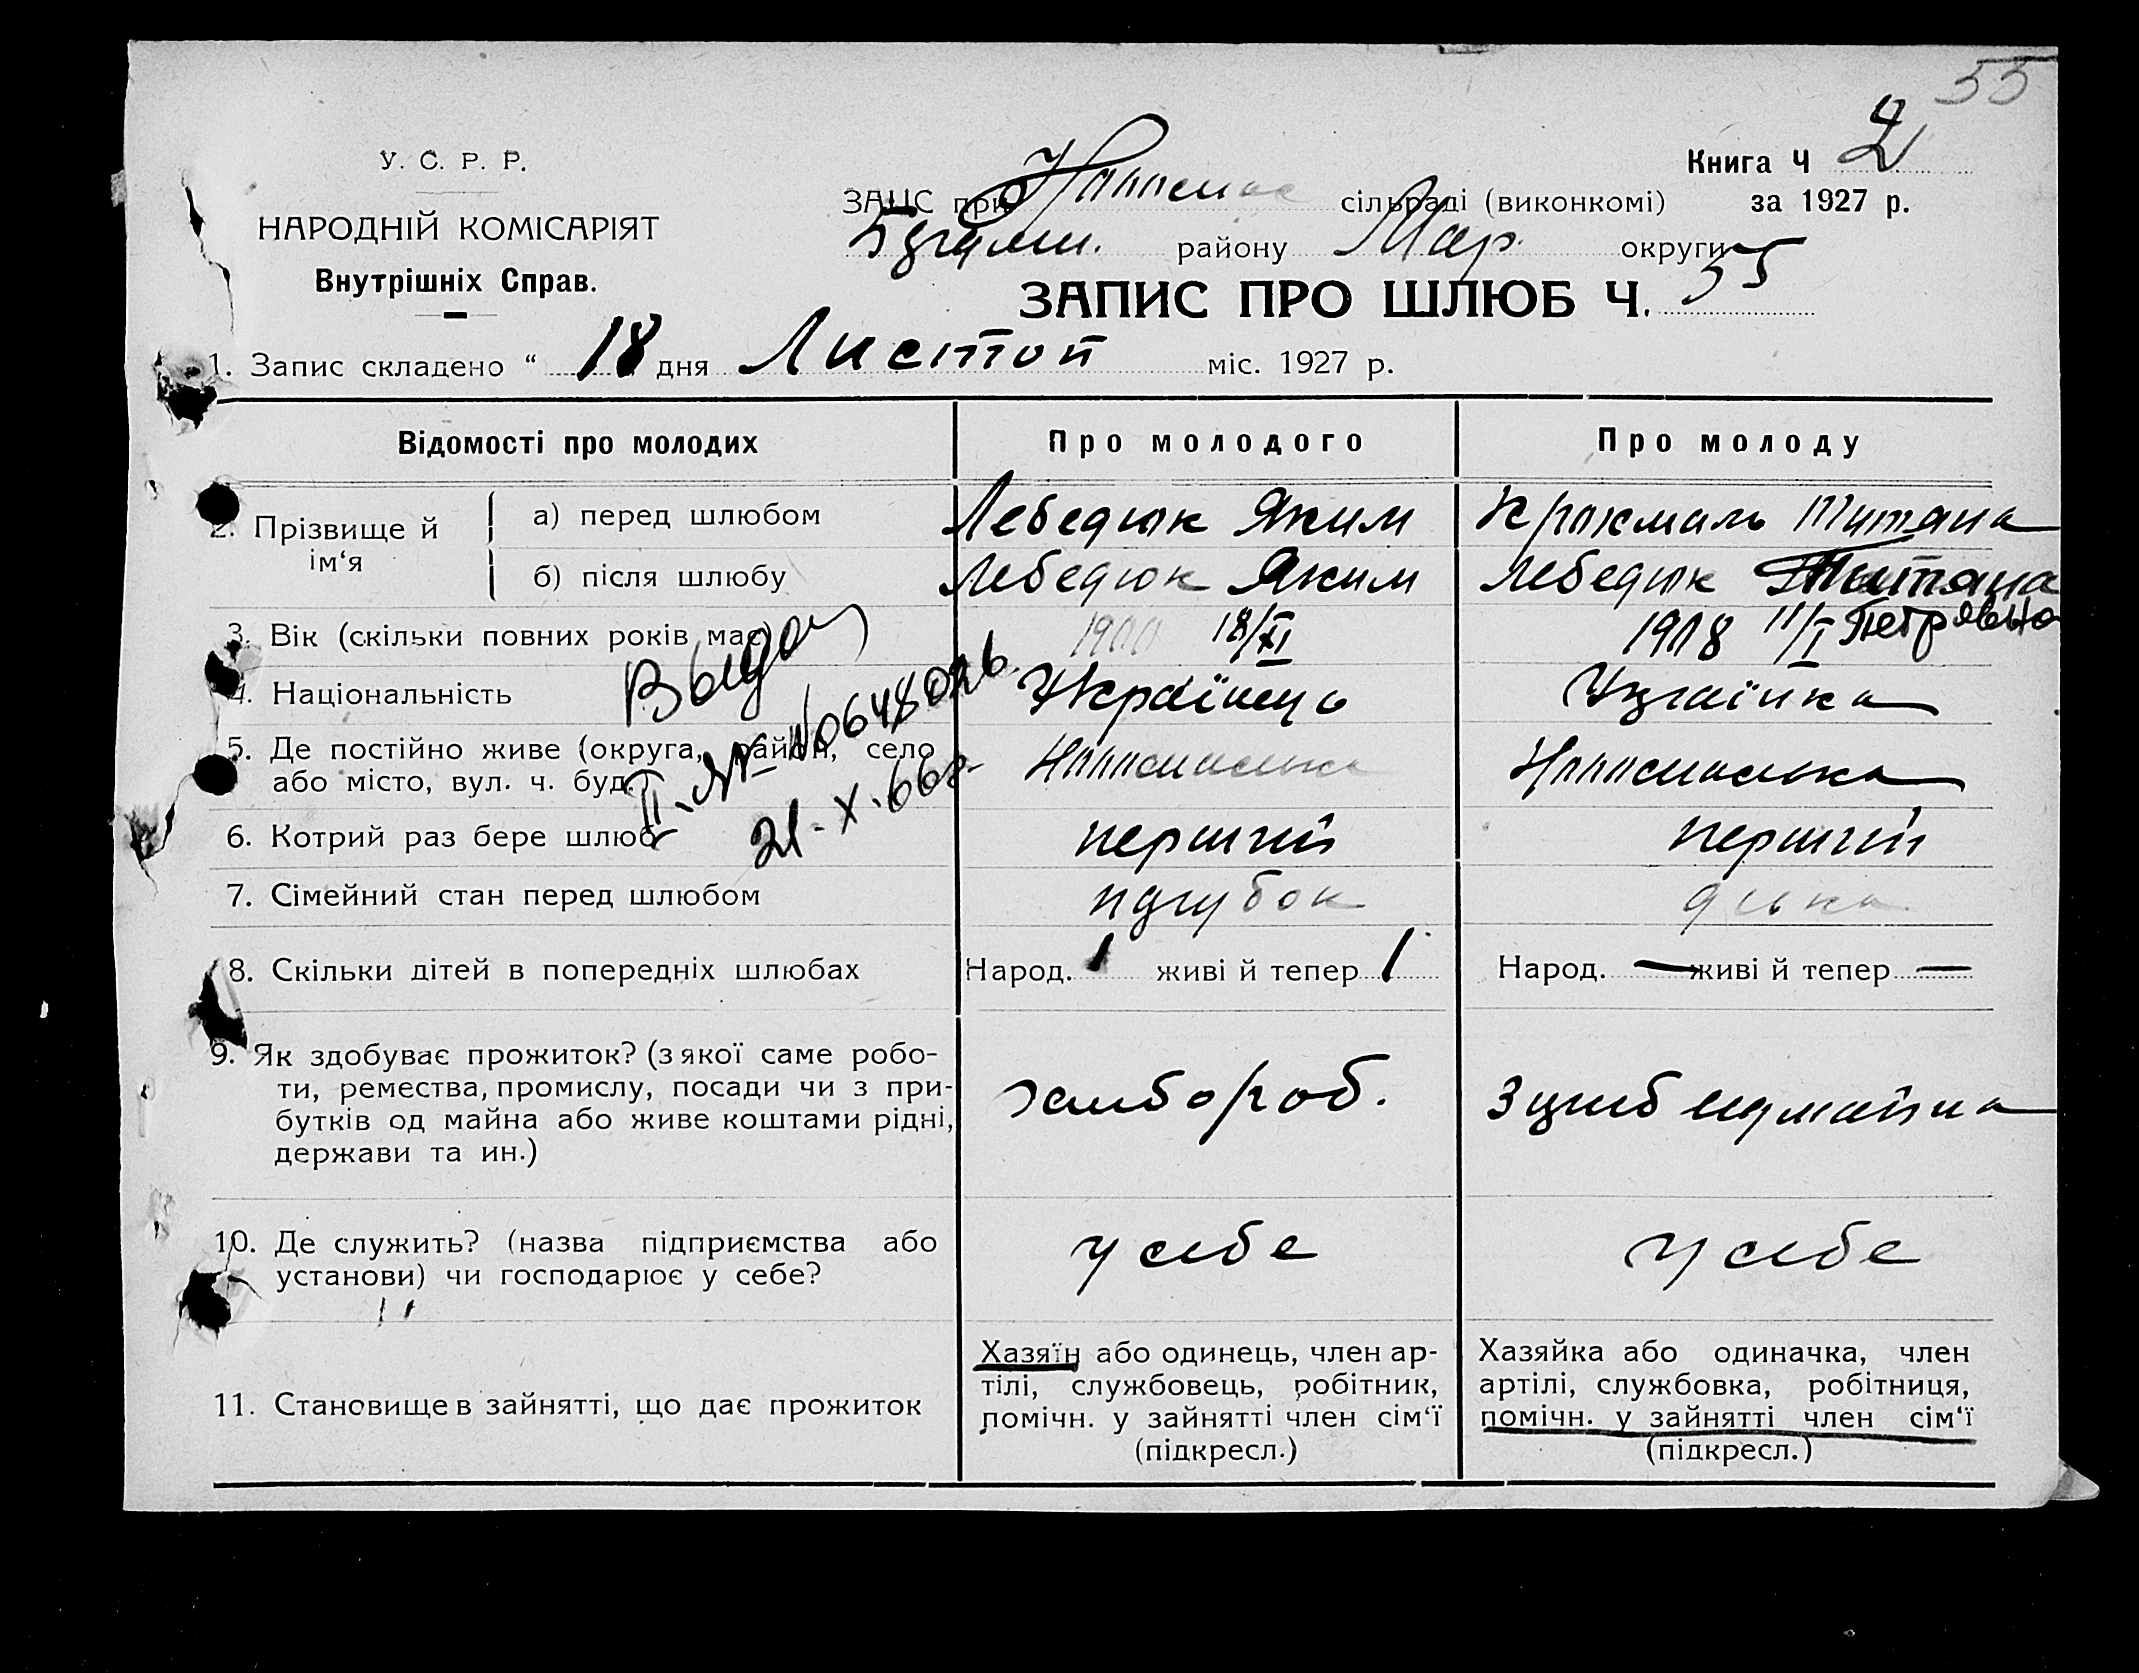 55
У. С. Р. Р.
НАРОДНІЙ КОМІСАРІЯТ
Внутрішніх Справ.
Книга Ч 2
ЗАЦС при сільраді (виконкомі) за 1927 р.
району Мар. округи
ЗАПИС ПРО ШЛЮБ Ч. 35
1. Запис складено “ 18 дня Листоп міс. 1927 р.
Відомості про молодих Про молодого Про молоду
2. Прізвище й ім‘я
а) перед шлюбом Лебедюк Яким Крохмаль Титяна
б) після шлюбу Лебедюк Яким Лебедюк Титяна
Петрівна
3. Вік (скільки повних років має) 1900 18/XI 1908 11/I
4. Національність Українець Українка
5. Де постійно живе (округа, район, село
або місто, вул. ч. буд.)
6. Котрий раз бере шлюб перший перший
7. Сімейний стан перед шлюбом парубок дівка
8. Скільки дітей в попередніх шлюбах Народ. 1 живі й тепер 1 Народ. — живі й тепер —
9. Як здобуває прожиток? (з якої саме робо-
ти, ремества, промислу, посади чи з при-
бутків од майна або живе коштами рідні,
держави та ин.)
хлібороб.
10. Де служить? (назва підприємства або
установи) чи господарює у себе?
у себе у себе
11. Становище в зайнятті, що дає прожиток
Хазяїн або одинець, член ар-
тілі, службовець, робітник,
помічн. у зайнятті член сім‘ї
(підкресл.)
Хазяйка або одиначка, член
артілі, службовка, робітниця,
помічн. у зайнятті член сім‘ї
(підкресл.)
Выдан
21-X-66г.